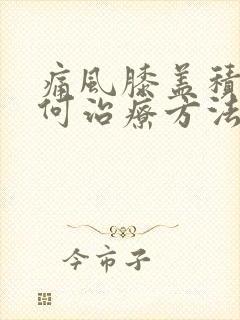 痛風膝盖積
何治療方法
今市子